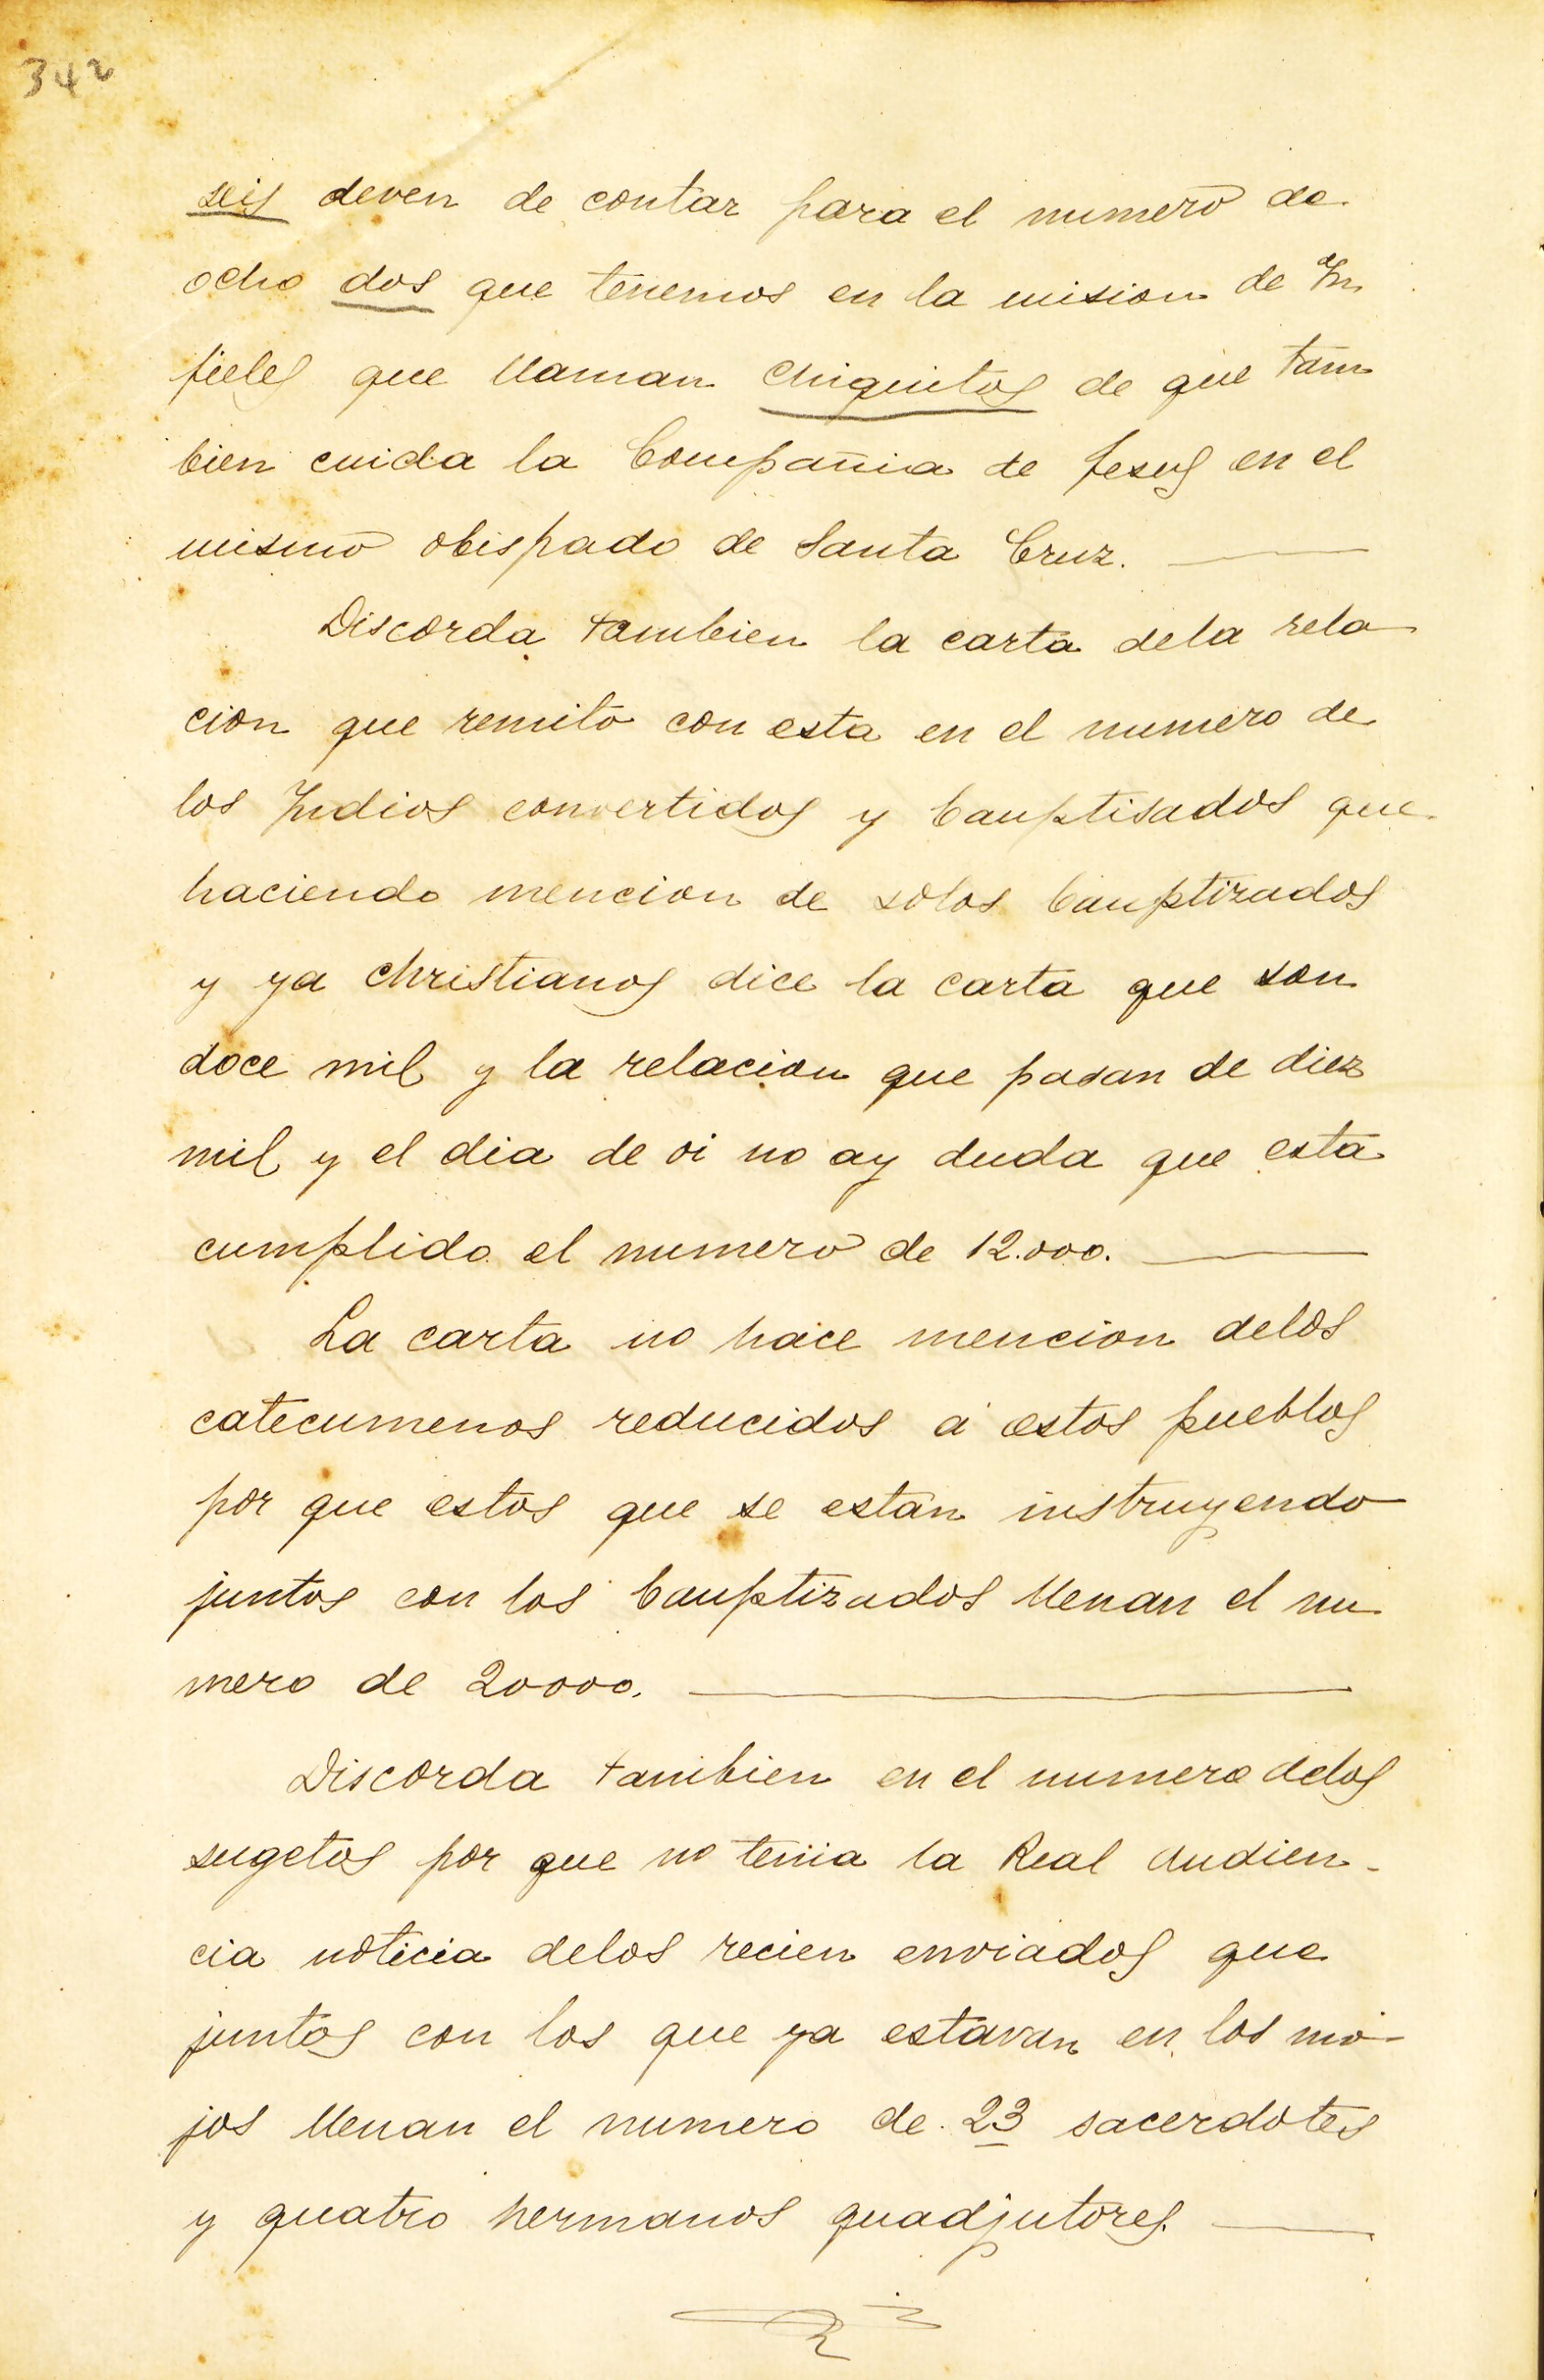 342
seis deven de contar para el numero de
ocho dos que tenemos en la mision de In
fieles que llaman Chiquitos de que tam
bien cuida la Compañia de Jesus en el
mismo obispado de Santa Cruz.
Discorda tambien la carta dela rela
cion que remito con esta en el numero de
los Indios convertidos y bauptisados que
haciendo mencion de solos bauptizados
y ya christianos dice la carta que son
doce mil y la relacion que pasan de diez
mil y el dia de oi no ay duda que esta
cumplido el numero de 12.000.
La carta no hace mencion delos
catecumenos reducidos á estos pueblos
por que estos que se están instruyendo
juntos con los bauptizados llenan el nu
mero de 20000.
Discorda tambien en el numero delos
sugetos por que no tenia la Real Audien-
cia noticia delos recien enviados que
juntos con los que ya estavan en los mo-
jos llenan el numero de 23 sacerdotes
y quatro hermanos quadjutores.